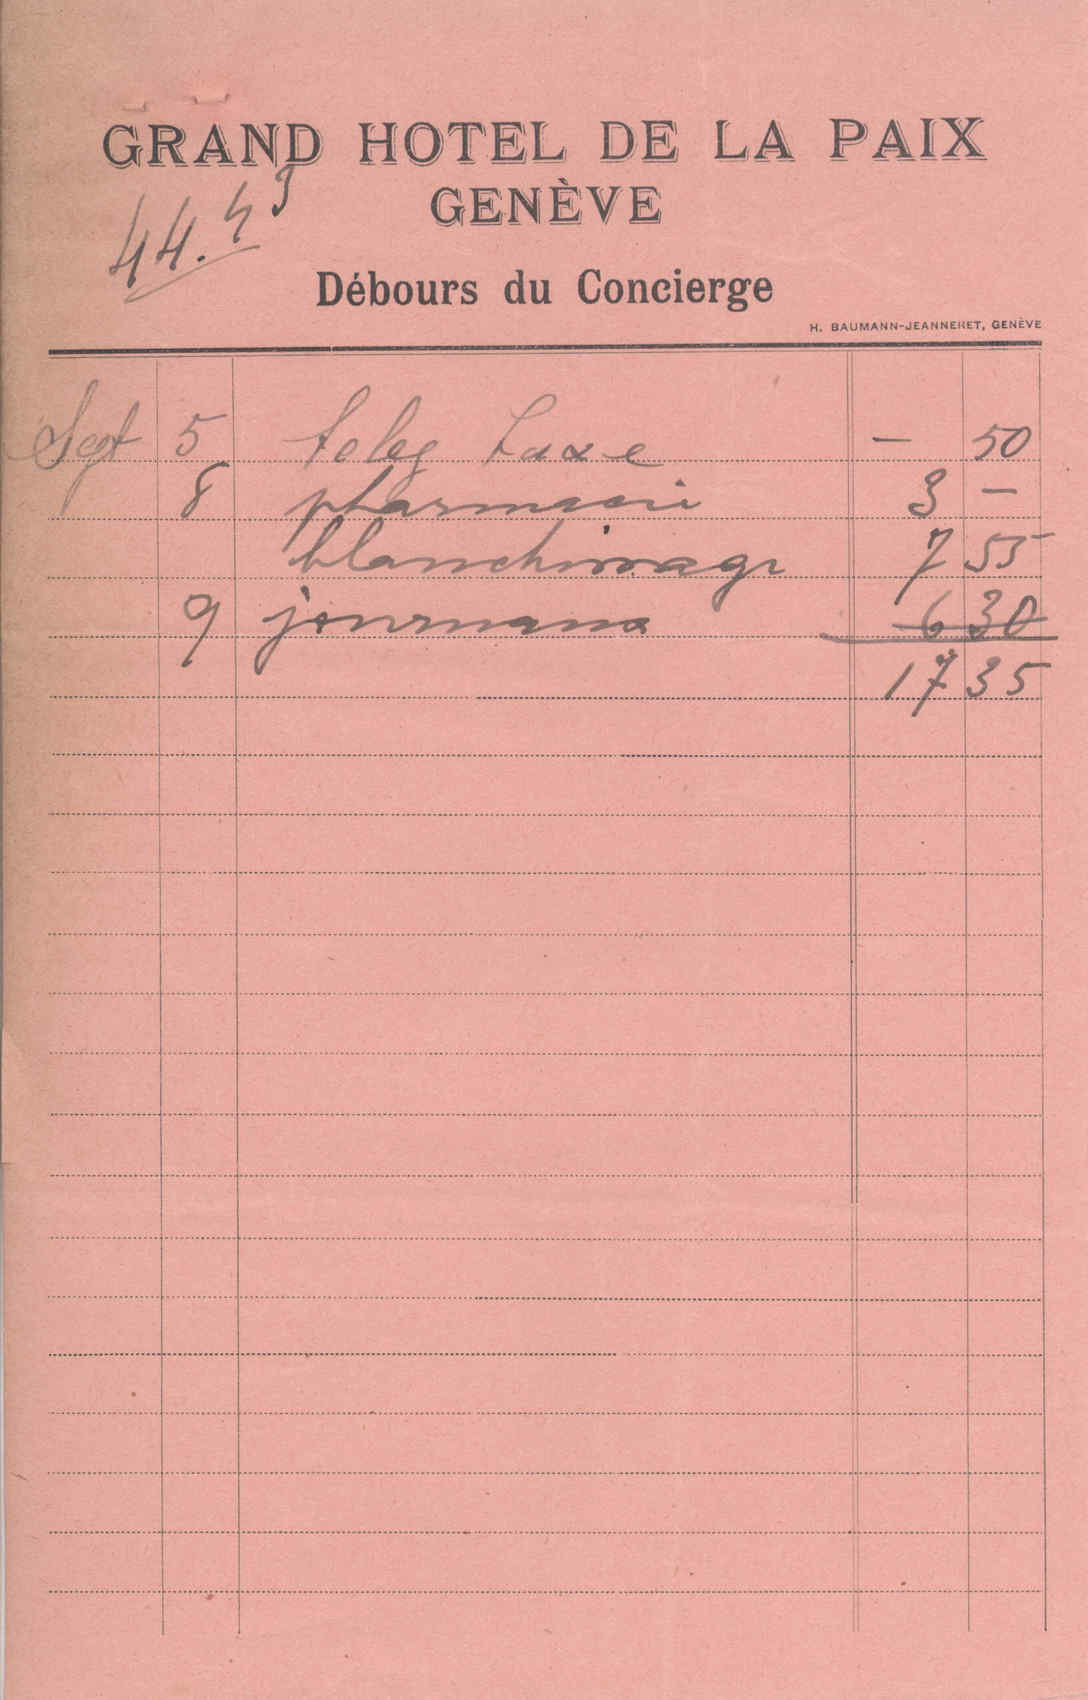 GRAND HOTEL DE LA PAIX
GENÈVE
44.43
Débours du Concierge
H. BAUMANN-JEANNERET, GENÈVE
Sept 5 teleg taxe — 50
8 pharmacie 3 —
blanchissage 7 55
9 journaux 6 30
17 35